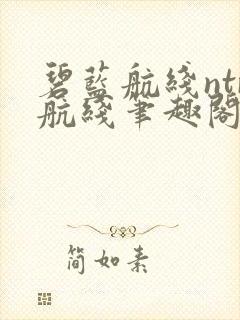 碧蓝航线nt
航线笔趣阁
简如素